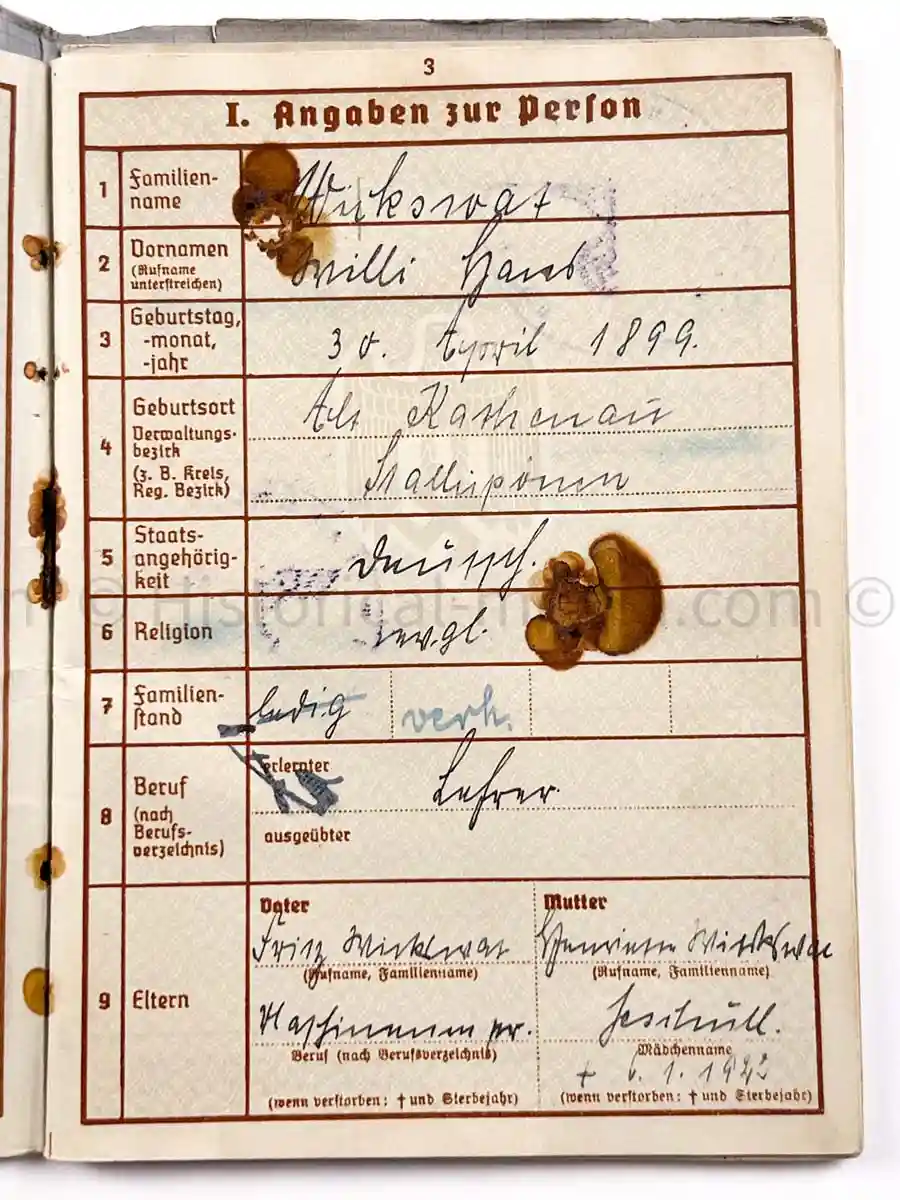 3
I. Angaben zur Person
1 Familien-
name
Wickswat
2 Vornamen
(Rufname
unterstreichen)
Willi Hans
3 Geburtstag,
-monat,
-jahr
30. April 1899.
4 Geburtsort
Verwaltungs-
bezirk
(z. B. Kreis,
Reg. Bezirk)
Alt Kattenau
Stallupönen
5 Staats-
angehörig-
keit
deutsch.
© Historical-media.com ©
6 Religion
evgl.
7 Familien-
stand
ledig verh.
8 Beruf
(nach
Berufs-
verzeichnis)
erlernter
Lehrer.
ausgeübter
9 Eltern
Vater
Fritz Wickswat
(Rufname, Familienname)
Beruf (nach Berufsverzeichnis)
(wenn verstorben: † und Sterbejahr)
Mutter
Henriette Wickswat
(Rufname, Familienname)
Mädchenname
† 6. 1. 1942
(wenn verstorben: † und Sterbejahr)